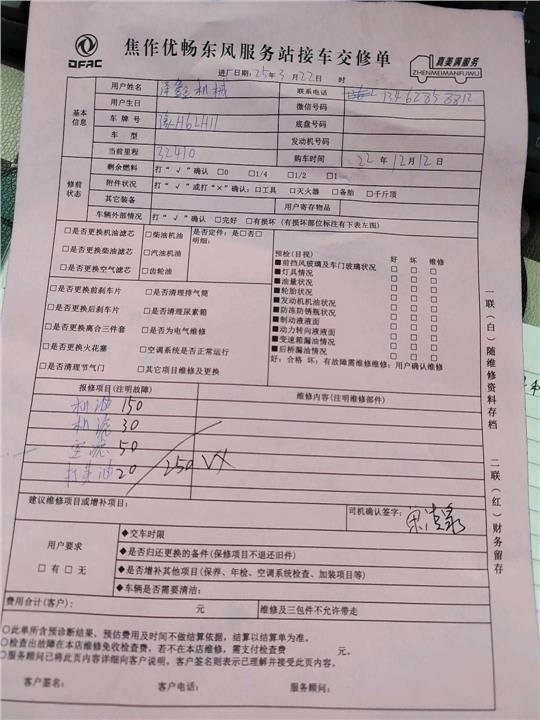 DFAC
焦作优畅东风服务站接车交修单
真美满服务
ZHENMEIMANFUWU
进厂日期: 25年3月22日 时
基本信息
用户姓名 机械 联系电话
用户生日 微信号码
车牌号 豫H62H11 底盘号码
车型 发动机号码
当前里程 32410 购车时间 22年12月12日
修前状态
剩余燃料 打“√”确认 □0 □1/4 □1/2 □1
附件状况 打“√”或打“×”确认: □工具 □灭火器 □备胎 □千斤顶
其它装备 用户寄存物品
车辆外部情况 打“√”确认 □完好 □有损坏 (有损坏部位标注有下表左图)
□是否更换机油滤芯 □柴油机油 是否定件: 是□否□
明细:
□是否更换柴油滤芯 □汽油机油
□是否更换空气滤芯 □齿轮油
□是否更换前刹车片 □是否清理排气筒
□是否更换后刹车片 □是否清理尿素箱
□是否更换离合三件套 □是否为电气维修
□是否更换火花塞 □空调系统是否正常运行
□是否清理节气门 □其它项目维修及更换
预检(目视) 好 坏 维修
■前挡风玻璃及车门玻璃状况 □ □ □
■灯具情况 □ □ □
■油量状况 □ □ □
■轮胎状况 □ □ □
■发动机机油状况 □ □ □
■防冻防锈瓶状况 □ □ □
■制动液液面 □ □ □
■动力转向液液面 □ □ □
■变速箱漏油情况 □ □ □
■后桥漏油情况 □ □ □
好; 合格 坏; 有故障需维修维修; 用户确认维修
报修项目(注明故障) 维修内容(注明维修部件)
机油 150
机滤 30
空滤 50
打黄油 20 250 VX
建议维修项目或增补项目:
司机确认签字:
用户要求
□有 □无
◆交车时限
◆是否归还更换的备件(保修项目不退还旧件)
◆是否增补其他项目(保养、年检、空调系统检查、加装项目等)
◆车辆是否需要清洁:
费用合计(客户): 元 维修及三包件不允许带走
○此单所含预诊断结果, 预估费用及时间不做结算依据, 结算以结算单为准。
○检查出故障在本店维修免收检查费, 若不在本店维修, 需支付检查费 元。
○服务顾问已将此页内容详细向客户说明, 客户签名则表示已理解并接受此页内容。
客户签名: 客户电话: 服务顾问:
一联(白)随维修资料存档
二联(红)财务留存